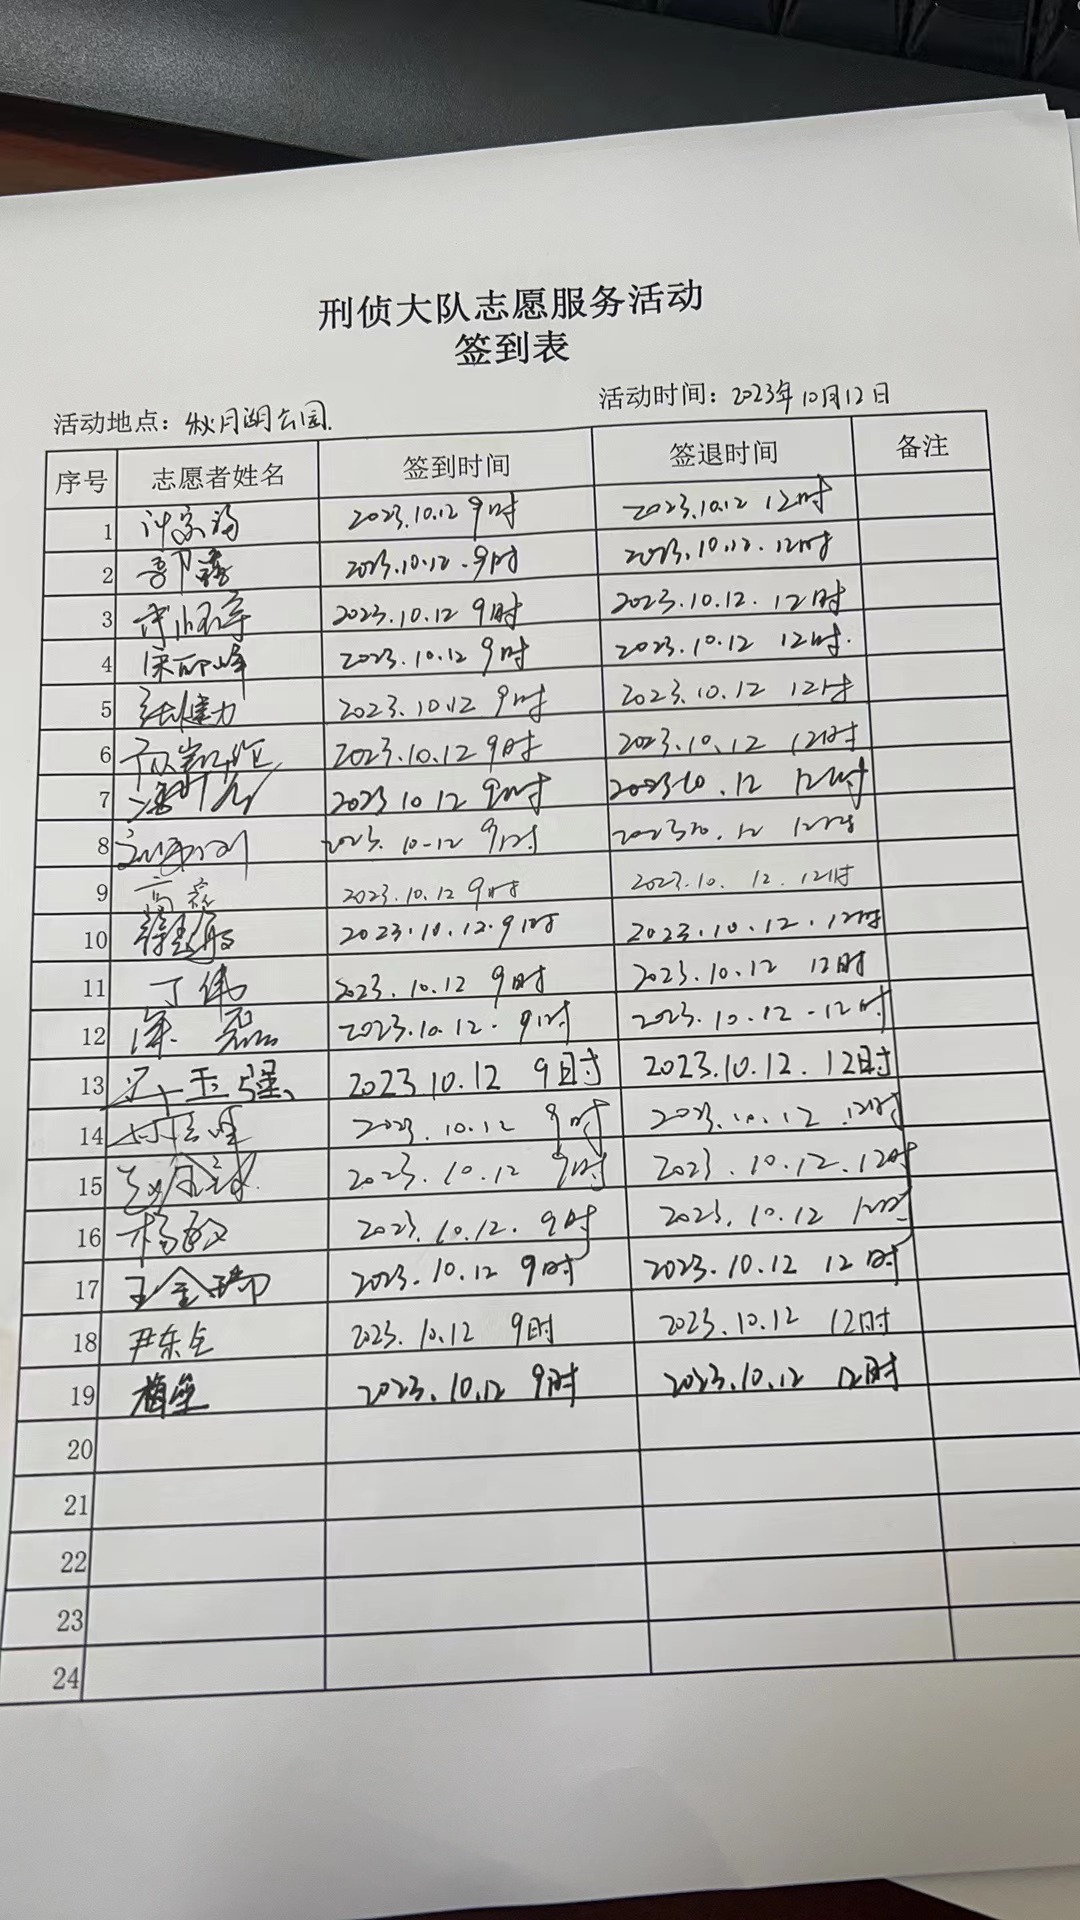 刑侦大队志愿服务活动
签到表
活动地点：秋月湖公园. 活动时间：2023年10月12日
序号 志愿者姓名 签到时间 签退时间 备注
1 2023.10.12 9时 2023.10.12 12时
2 2023.10.12.9时 2023.10.12.12时
3 2023.10.12 9时 2023.10.12.12时
4 2023.10.12 9时 2023.10.12 12时.
5 张健力 2023.10.12 9时 2023.10.12 12时
6 2023.10.12 9时 2023.10.12 12时
7 2023 10 12 9时 2023 10.12 12时
8 2023.10-12 9时 202310.12 12时
9 高磊 2023.10.12 9时 2023.10.12.12时
10 2023.10.12.9时 2023.10.12.12时
11 丁伟 2023.10.12 9时 2023.10.12 12时
12 磊 2023.10.12.9时 2023.10.12-12时
13 玉强 2023.10.12 9时 2023.10.12.12时
14 2023.10.12 9时 2023.10.12.12时
15 2023.10.12 9时 2023.10.12.12时
16 杨毅 2023.10.12.9时 2023.10.12 12时
17 王金瑞 2023.10.12 9时 2023.10.12 12时
18 尹东全 2023.10.12 9时 2023.10.12 12时
19 2023.10.12 9时 2023.10.12 12时
20
21
22
23
24